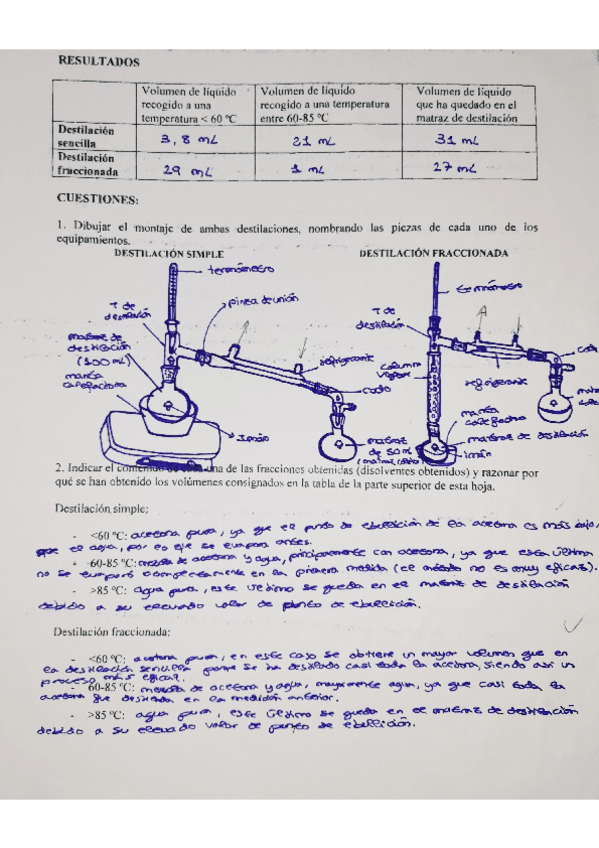 RESULTADOS
Volumen de líquido recogido a una temperatura < 60 ºC
Volumen de líquido recogido a una temperatura entre 60-85 ºC
Volumen de líquido que ha quedado en el matraz de destilación
Destilación sencilla 3,8 mL 21 mL 31 mL
Destilación fraccionada 29 mL 1 mL 27 mL
CUESTIONES:
1. Dibujar el montaje de ambas destilaciones, nombrando las piezas de cada uno de los
equipamientos.
DESTILACIÓN SIMPLE
DESTILACIÓN FRACCIONADA
termómetro
T de destilación
pinza de unión
matraz de destilación (100 mL)
manta calefactora
refrigerante
codo
imán
matraz de 50 mL
termómetro
T de destilación
columna
refrigerante
codo
manta calefactora
matraz de destilación
imán
2. Indicar el de las fracciones obtenidas (disolventes obtenidos) y razonar por
qué se han obtenido los volúmenes consignados en la tabla de la parte superior de esta hoja.
Destilación simple:
- <60 ºC: acetona pura, ya que el punto de ebullición de la acetona es más bajo,
que el agua, por lo que se evapora antes.
- 60-85 ºC: mezcla de acetona y agua, principalmente con acetona, ya que esta última
no se evaporó completamente en la primera medida (el método no es muy eficaz).
- >85 ºC: agua pura, este último se queda en el matraz de destilación
debido a su elevado valor de punto de ebullición.
Destilación fraccionada:
- <60 ºC: acetona pura, en este caso se obtiene un mayor volumen que en
la destilación sencilla porque se ha destilado casi toda la acetona, siendo así un
proceso más eficaz.
- 60-85 ºC: mezcla de acetona y agua, mayormente agua, ya que casi toda la
acetona fue destilada en la medición anterior.
- >85 ºC: agua pura, este último se queda en el matraz de destilación
debido a su elevado valor de punto de ebullición.